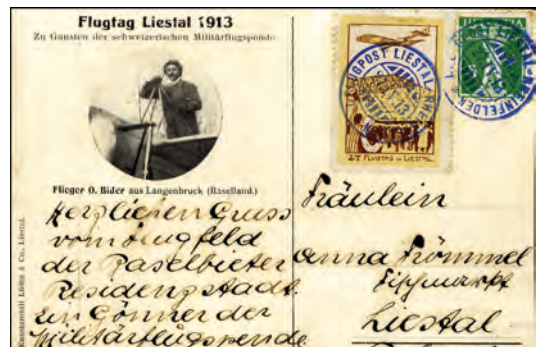 Flugtag Liestal 1913
Zu Gunsten der schweizerischen Militärflugspende
Flieger O. Bider aus Langenbruck (Baselland.)
Kunstanstalt Lüdin & Co., Liestal.
Herzlichen Gruss
vom Flugfeld
der Baselbieter
Residenzstadt.
Ein Gönner der
Militärflugspende
HELVETIA
FLUGPOST LIESTAL-RHEINFELDEN
FLUGTAG IN LIESTAL
Fräulein
Anna Frömmel
Fischmarkt
Liestal